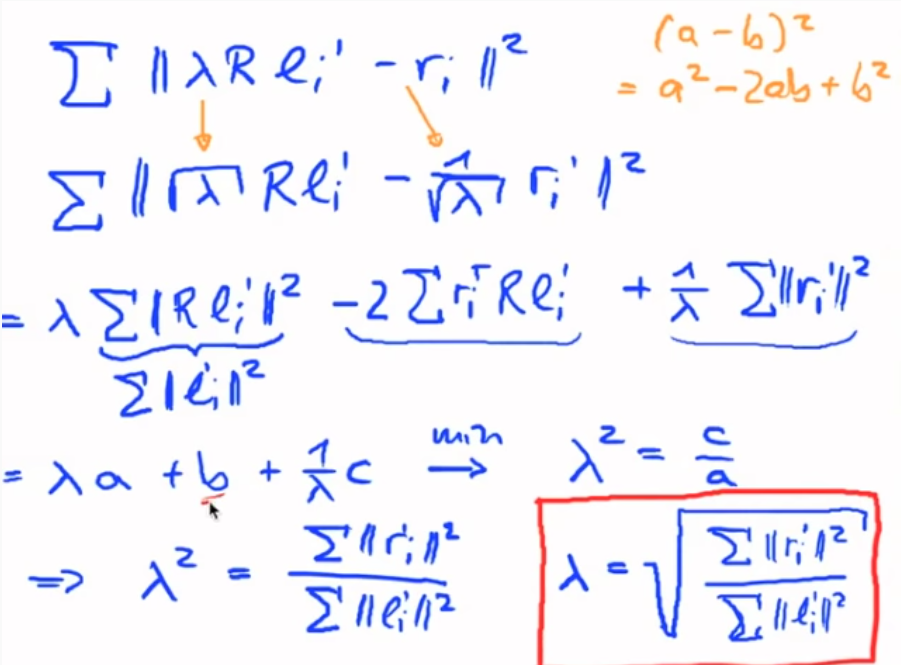 ∑ ‖λ R ℓᵢ' − rᵢ ‖²
(a − b)²
= a² − 2ab + b²
∑ ‖√λ R ℓᵢ' − 1/√λ rᵢ' ‖²
= λ ∑ ‖R ℓᵢ'‖² − 2 ∑ rᵢ'ᵀ R ℓᵢ' + 1/λ ∑ ‖rᵢ'‖²
∑ ‖ℓᵢ'‖²
= λ a + b + 1/λ c min→ λ² = c/a
⇒ λ² = ∑ ‖rᵢ'‖² / ∑ ‖ℓᵢ'‖²
λ = √(∑ ‖rᵢ'‖² / ∑ ‖ℓᵢ'‖²)